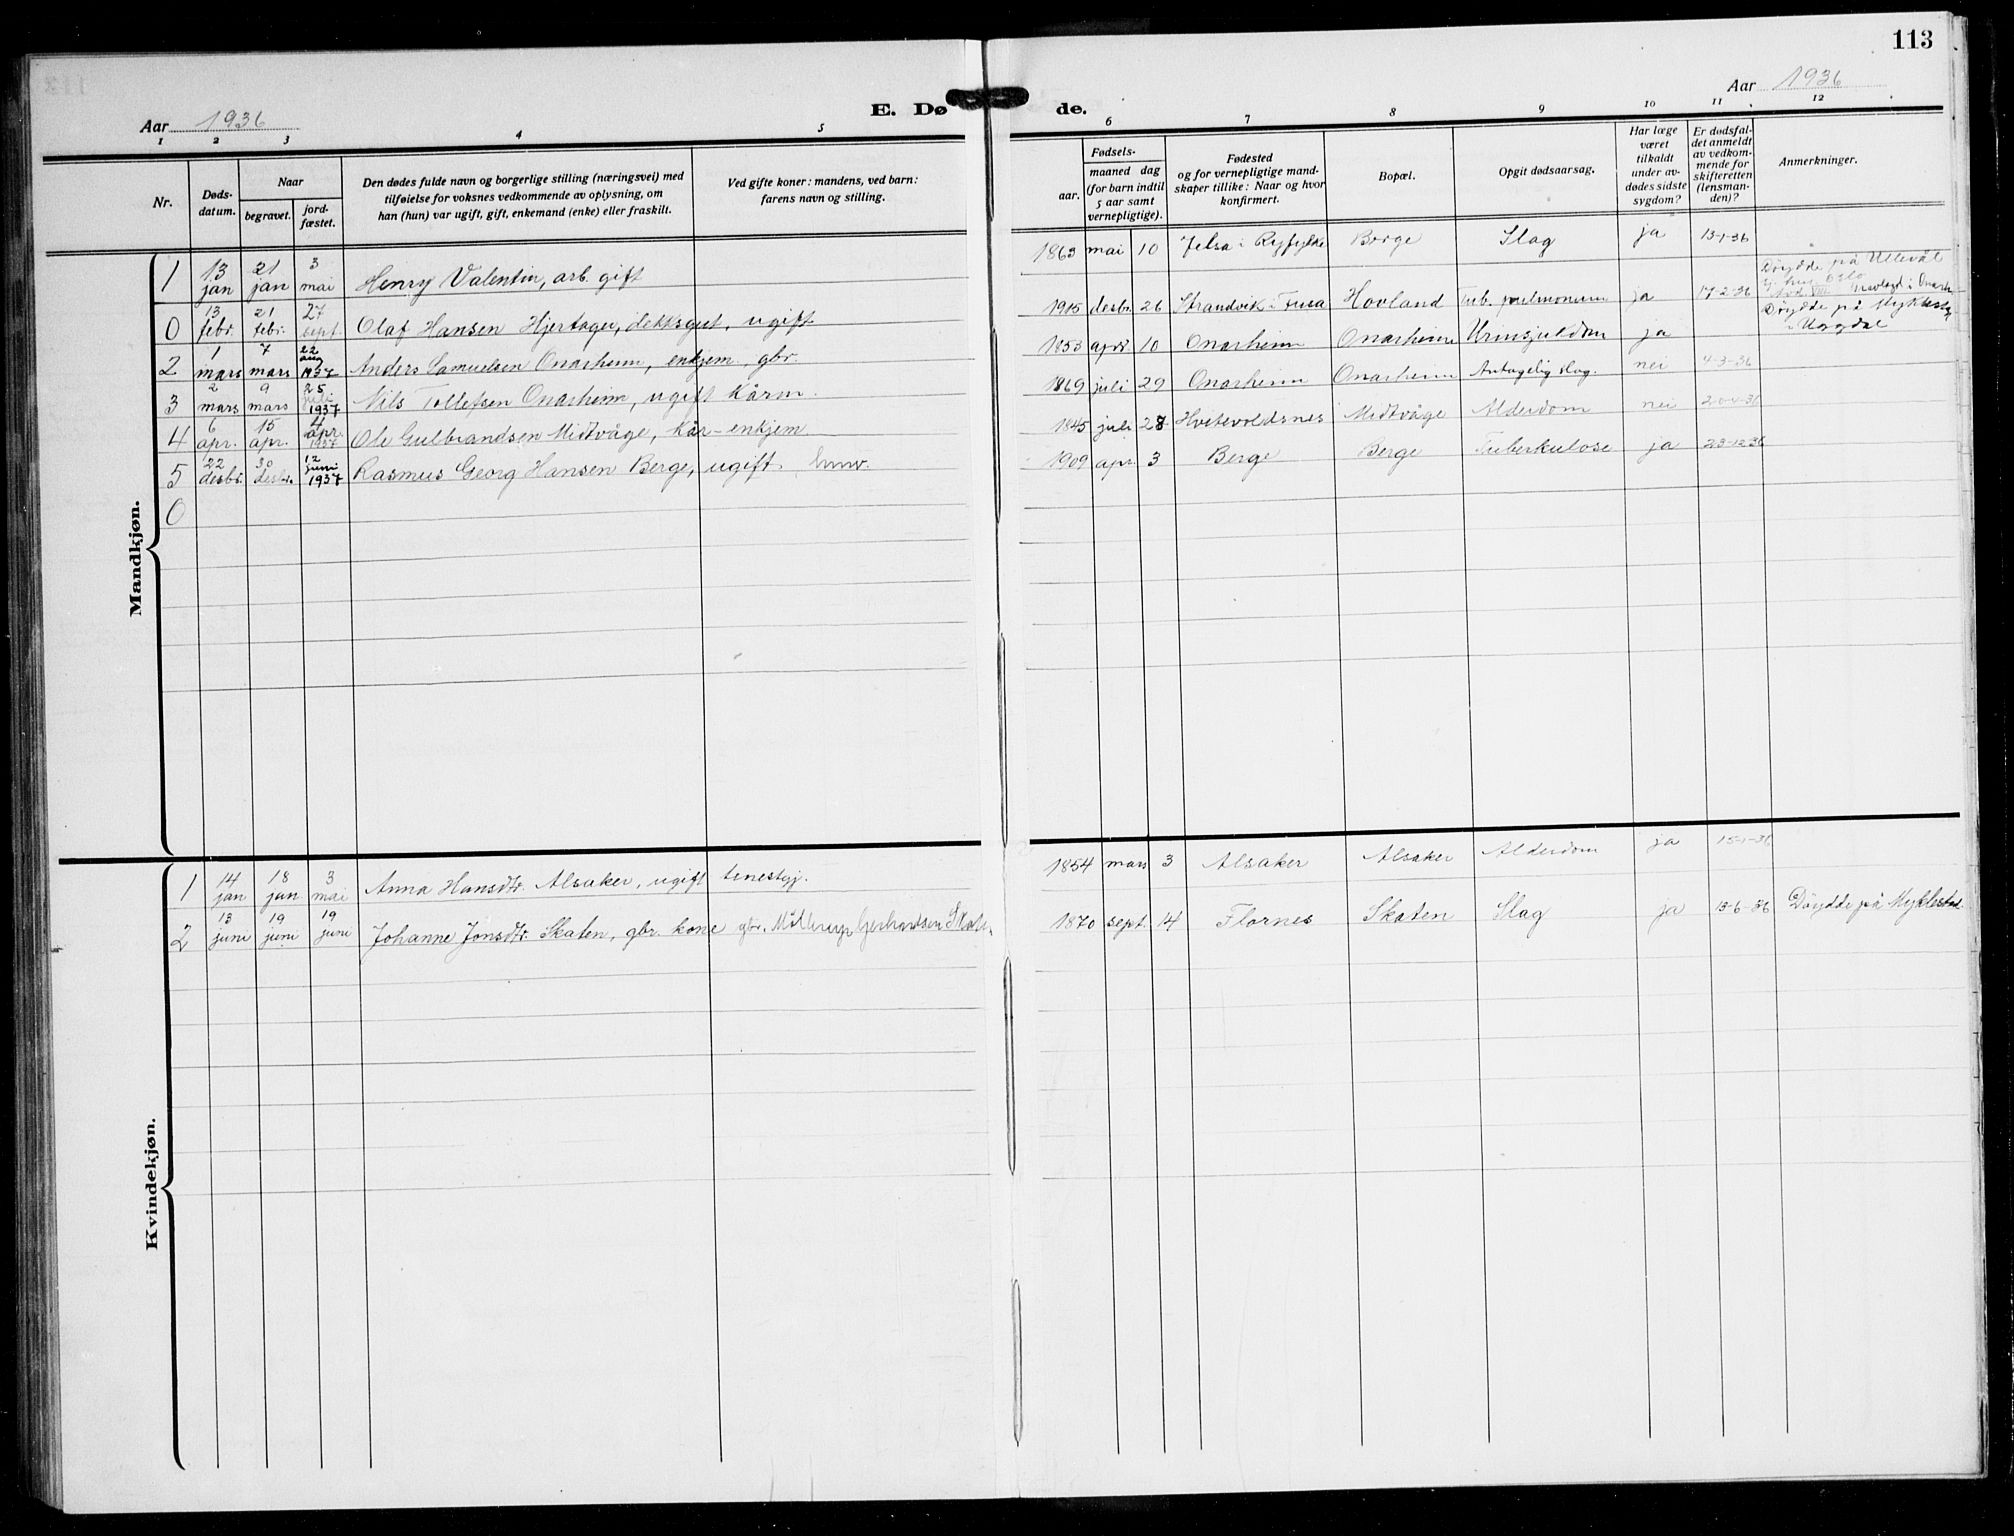 113
Aar 1936
E. Dø de.
Aar 1936
1 2 3 4 5 6 7 8 9 10 11 12
Nr.
Døds-
datum.
Naar
begravet.
jord-
fæstet.
Den dødes fulde navn og borgerlige stilling (næringsvei) med
tilføielse for voksnes vedkommende av oplysning, om
han (hun) var ugift, gift, enkemand (enke) eller fraskilt.
Ved gifte koner: mandens, ved barn:
farens navn og stilling.
Fødsels-
aar. maaned dag
(for barn indtil
5 aar samt
vernepligtige).
Fødested
og for vernepligtige mand-
skaper tillike: Naar og hvor
konfirmert.
Bopæl.
Opgit dødsaarsag.
Har læge
været
tilkaldt
under av-
dødes sidste
sygdom?
Er dødsfal-
det anmeldt
av vedkom-
mende for
skifteretten
(lensman-
den)?
Anmerkninger.
Mandkjøn.
1 13 jan 21 jan 3 mai Henry Valentin, arb. gift 1863 mai 10 Jelsa i Ryfylke Berge Slag ja 13-1-36
0 13 febr. 21 febr. 27 sept. Olaf Hansen Hjertager, dekksgut, ugift 1905 desbr. 26 Strandvik i Fusa Hovland Tub. pulmonum ja 17-2-36 Døydde på Ullevål
2 1 mars 7 mars 22 aug 1937 Anders Samuelsen Onarheim, enkjem. gbr. 1853 april 10 Onarheim Onarheim Urinsjukdom ja Døydde på Myklestad
i Uggdal
3 2 mars 9 mars 25 juli 1937 Nils Tollefsen Onarheim, ugift kårm. 1869 juli 29 Onarheim Onarheim Antagelig slag. nei 4-3-36
4 6 apr. 15 apr. 4 apr. 1937 Ole Gulbrandsen Midtvåge, kår-enkjem. 1845 juli 28 Hvitevoldsnes Midtvåge Alderdom nei 20-4-36
5 22 desbr. 30 desbr. 12 juni 1937 Rasmus Georg Hansen Berge, ugift. 1909 apr. 3 Berge Berge Tuberkulose ja 23-12-36
0
Kvindekjøn.
1 14 jan 18 jan 3 mai Anna Hansdtr. Alsaker, ugift tenestgj. 1854 mars 3 Alsaker Alsaker Alderdom ja 15-1-36
2 13 juni 19 juni 19 juni Johanne Jonsdtr. Skaten, gbr. kone gbr. Gerhardsen Skaten 1870 sept. 14 Flornes Skaten Slag ja 13-6-36 Døydde på Myklestad